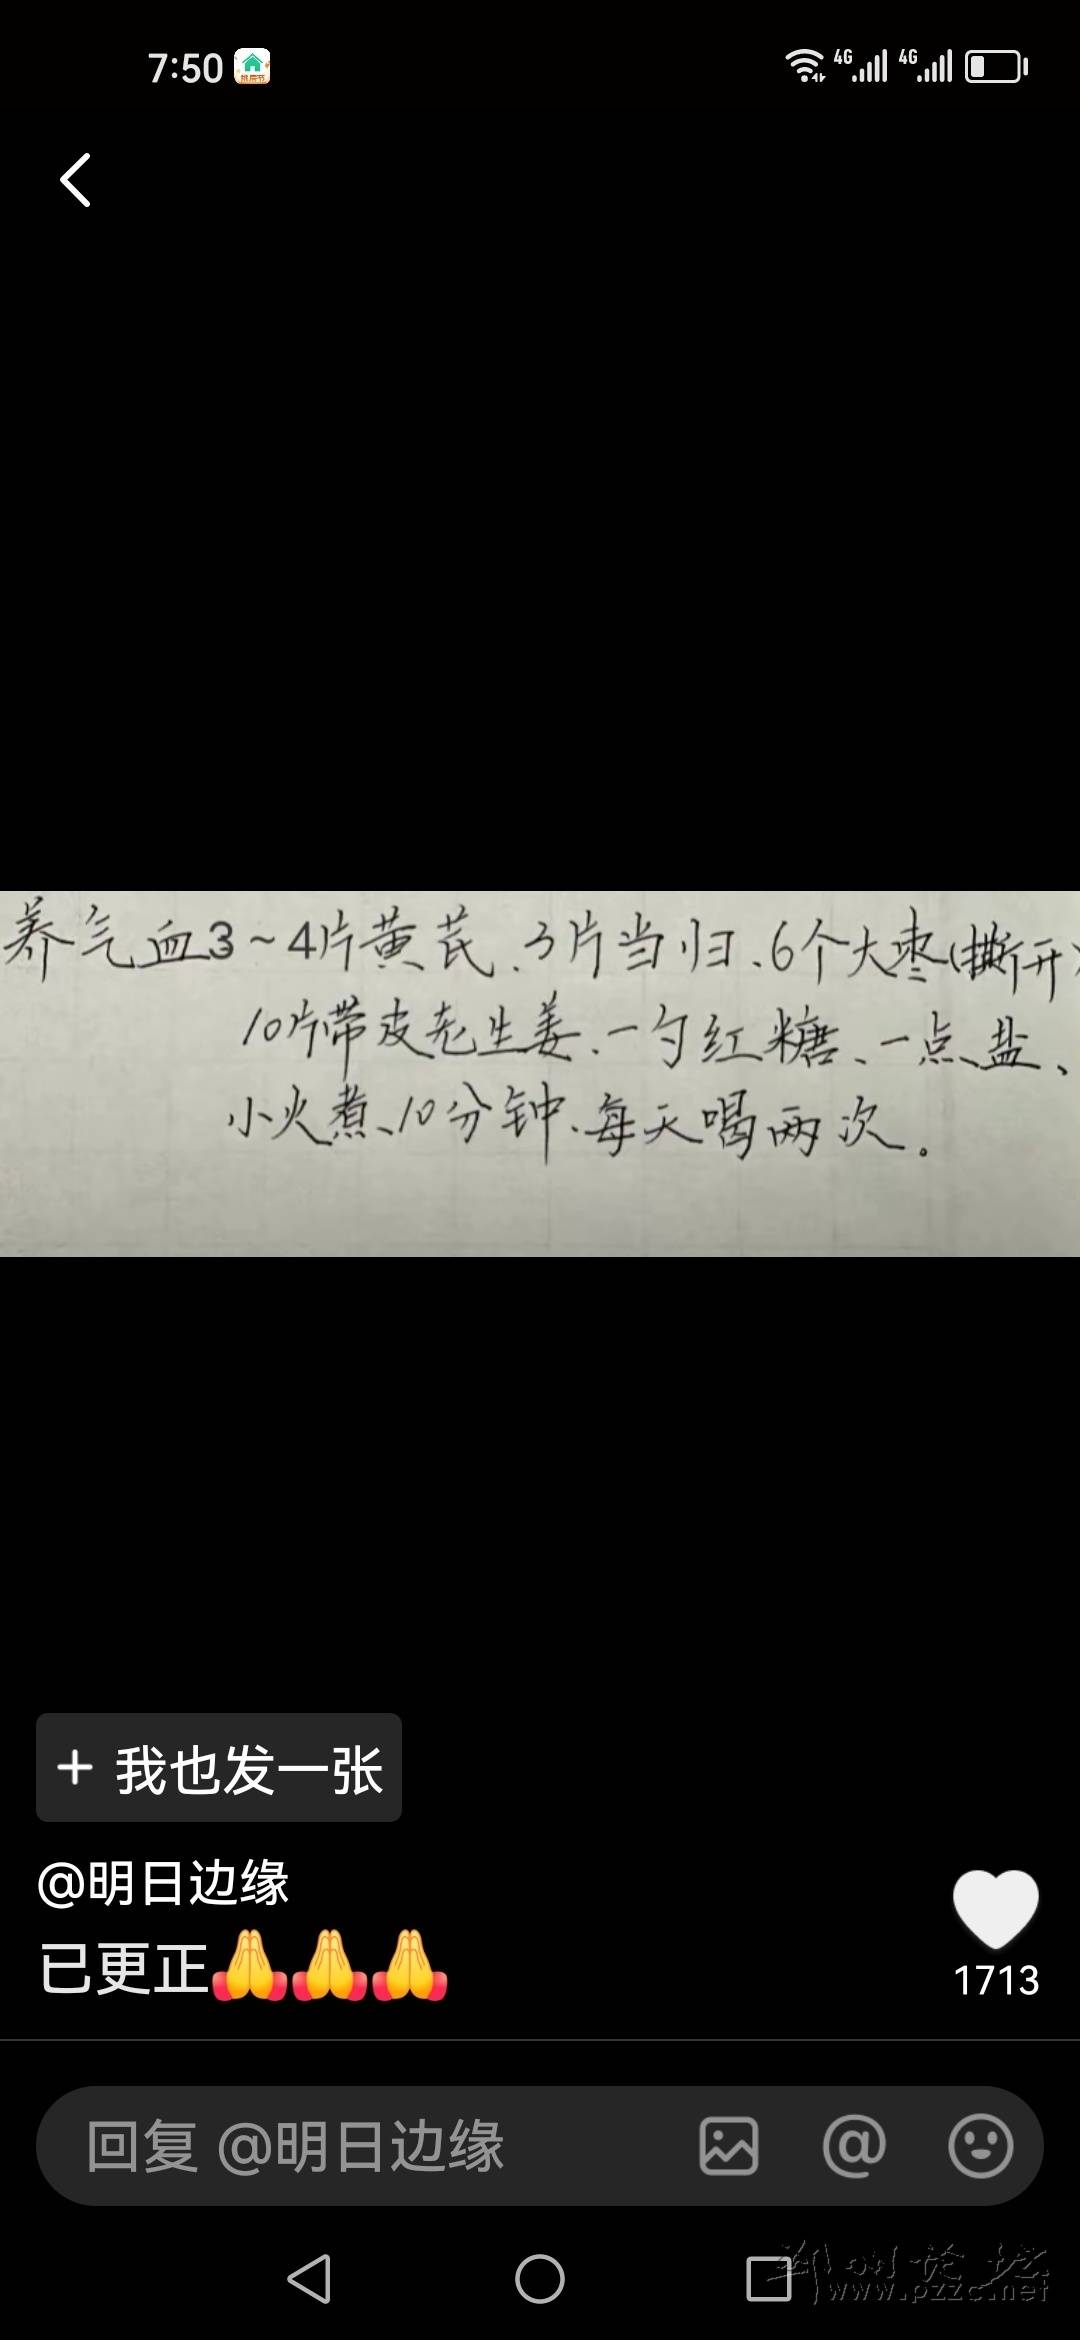 7:50
4G 4G
养气血3~4片黄芪、3片当归、6个大枣(撕开)
10片带皮老生姜、一勺红糖、一点盐、
小火煮、10分钟、每天喝两次。
+ 我也发一张
@明日边缘
已更正🙏🙏🙏
1713
回复 @明日边缘
www.pzzc.net